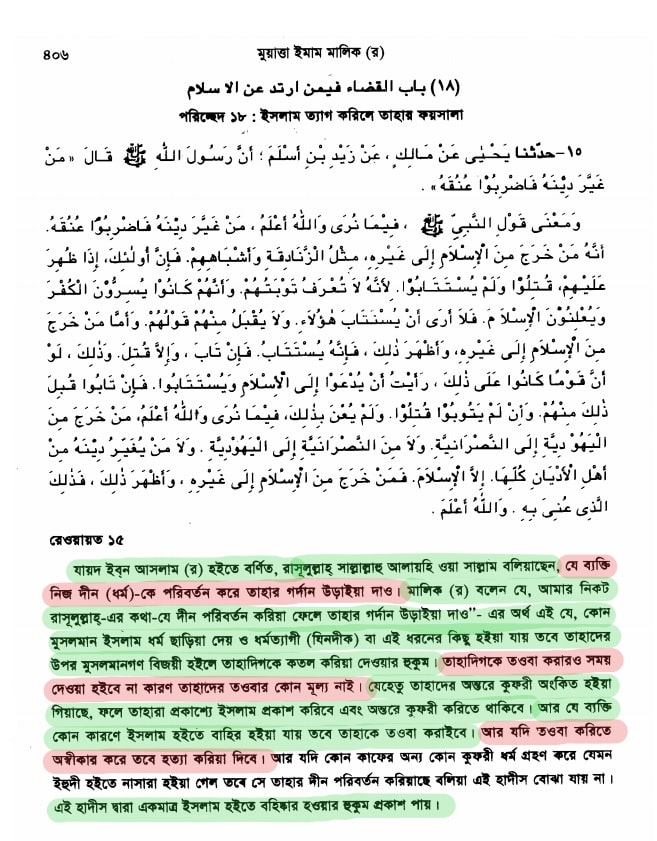 ৪০৬
মুয়াত্তা ইমাম মালিক (র)
(١٨) باب القضاء فيمن ارتد عن الاسلام
পরিচ্ছেদ ১৮ : ইসলাম ত্যাগ করিলে তাহার ফয়সালা
١٥-حدّثنا يَحْيٰى عَنْ مَالِكٍ ، عَنْ زَيْدِ بْنِ أَسْلَمَ ؛ أَنَّ رَسُولَ اللّٰهِ ﷺ قَالَ «مَنْ
غَيَّرَ دِيْنَهُ فَاضْرِبُوْا عُنُقَهُ» .
وَمَعْنَى قَوْلِ النَّبِيِّ ﷺ ، فِيْمَا نُرَى وَاللّٰهُ أَعْلَمُ ، مَنْ غَيَّرَ دِيْنَهُ فَاضْرِبُوْا عُنُقَهُ.
أَنَّهُ مَنْ خَرَجَ مِنَ الْإِسْلَامِ إِلَى غَيْرِهِ، مِثْلُ الزَّنَادِقَةِ وَأَشْبَاهِهِمْ. فَإِنَّ أُولٰئِكَ، إِذَا ظُهِرَ
عَلَيْهِمْ، قُتِلُوْا وَلَمْ يُسْتَتَابُوْا. لِأَنَّهُ لَا تُعْرَفُ تَوْبَتُهُمْ. وَأَنَّهُمْ كَانُوْا يُسِرُّوْنَ الْكُفْرَ
وَيُعْلِنُوْنَ الْإِسْلَا مَ. فَلَا أَرَى أَنْ يُسْتَتَابَ هٰؤُلَاءِ. وَلَا يُقْبَلُ مِنْهُمْ قَوْلُهُمْ. وَأَمَّا مَنْ خَرَجَ
مِنَ الْإِسْلَامِ إِلَى غَيْرِهِ، وَأَظْهَرَ ذٰلِكَ ، فَإِنَّهُ يُسْتَتَابُ. فَإِنْ تَابَ ، وَإِلَّا قُتِلَ. وَذٰلِكَ ، لَوْ
أَنَّ قَوْمًا كَانُوْا عَلَى ذٰلِكَ ، رَأَيْتُ أَنْ يُدْعَوْا إِلَى الْاِسْلَامِ وَيُسْتَتَابُوا. فَإِنْ تَابُوا قُبِلَ
ذٰلِكَ مِنْهُمْ. وَإِنْ لَمْ يَتُوبُوْا قُتِلُوْا. وَلَمْ يَعْنِ بِذٰلِكَ، فِيْمَا نُرَى وَاللّٰهُ أَعْلَمُ، مَنْ خَرَجَ مِنَ
الْيَهُوْ دِيَّةِ إِلَى النَّصْرَانِيَّةِ. وَلَا مِنَ النَّصْرَانِيَّةِ إِلَى الْيَهُوْدِيَّةِ . وَلَا مَنْ يُغَيِّرُ دِيْنَهُ مِنْ
أَهْلِ الْأَدْيَانِ كُلِّهَا. إِلَّا الْإِسْلَامَ. فَمَنْ خَرَجَ مِنَ الْإِسْلَامِ إِلَى غَيْرِهِ ، وَأَظْهَرَ ذٰلِكَ ، فَذٰلِكَ
الَّذِى عُنِىَ بِهِ . وَاللّٰهُ أَعْلَمُ .
রেওয়ায়ত ১৫
যায়দ ইব্ন আসলাম (র) হইতে বর্ণিত, রাসূলুল্লাহ্ সাল্লাল্লাহু আলায়হি ওয়া সাল্লাম বলিয়াছেন, যে ব্যক্তি
নিজ দীন (ধর্ম)-কে পরিবর্তন করে তাহার গর্দান উড়াইয়া দাও। মালিক (র) বলেন যে, আমার নিকট
রাসূলুল্লাহ্-এর কথা-যে দীন পরিবর্তন করিয়া ফেলে তাহার গর্দান উড়াইয়া দাও”- এর অর্থ এই যে, কোন
মুসলমান ইসলাম ধর্ম ছাড়িয়া দেয় ও ধর্মত্যাগী (যিনদীক) বা এই ধরনের কিছু হইয়া যায় তবে তাহাদের
উপর মুসলমানগণ বিজয়ী হইলে তাহাদিগকে কতল করিয়া দেওয়ার হুকুম। তাহাদিগকে তওবা করারও সময়
দেওয়া হইবে না কারণ তাহাদের তওবার কোন মূল্য নাই। যেহেতু তাহাদের অন্তরে কুফরী অংকিত হইয়া
গিয়াছে, ফলে তাহারা প্রকাশ্যে ইসলাম প্রকাশ করিবে এবং অন্তরে কুফরী করিতে থাকিবে। আর যে ব্যক্তি
কোন কারণে ইসলাম হইতে বাহির হইয়া যায় তবে তাহাকে তওবা করাইবে। আর যদি তওবা করিতে
অস্বীকার করে তবে হত্যা করিয়া দিবে। আর যদি কোন কাফের অন্য কোন কুফরী ধর্ম গ্রহণ করে যেমন
ইহুদী হইতে নাসারা হইয়া গেল তবে সে তাহার দীন পরিবর্তন করিয়াছে বলিয়া এই হাদীস বোঝা যায় না।
এই হাদীস দ্বারা একমাত্র ইসলাম হইতে বহিষ্কার হওয়ার হুকুম প্রকাশ পায়।